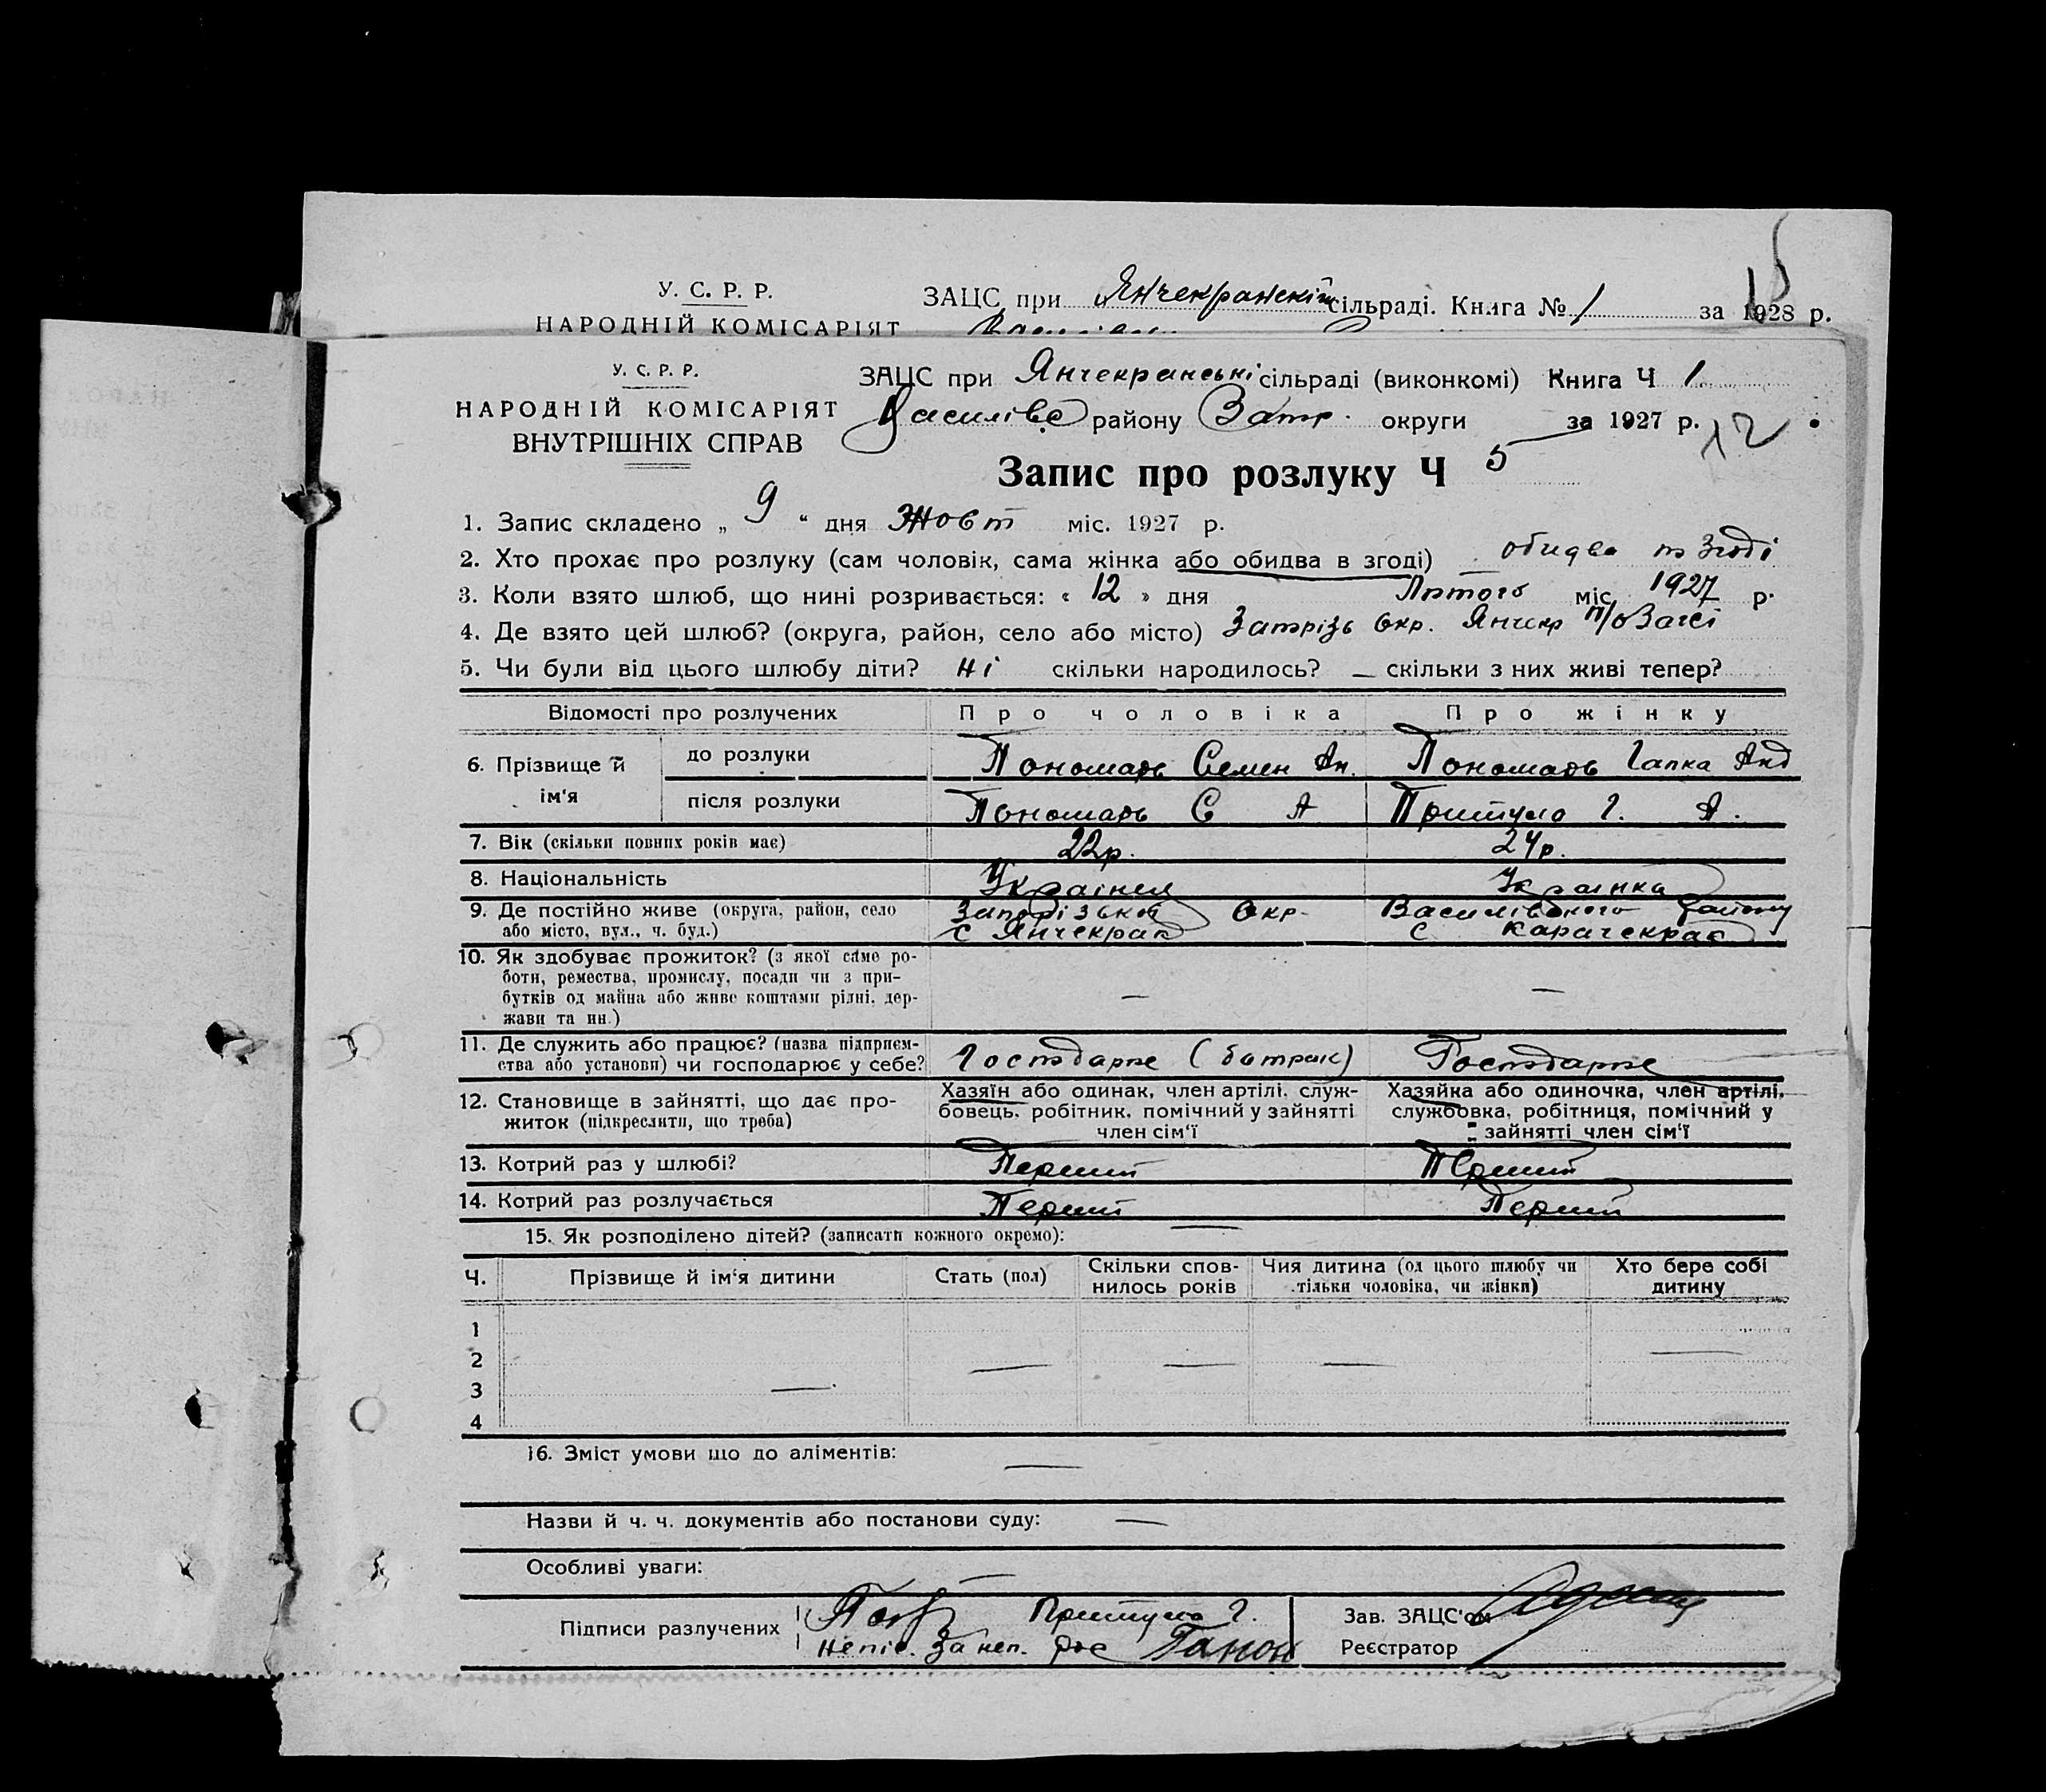 У. С. Р. Р. ЗАЦС при Янчекранскій сільраді. Книга № 1 за 1928 р.
15
НАРОДНІЙ КОМІСАРІЯТ
У. С. Р. Р. ЗАЦС при Янчекранські сільраді (виконкомі) Книга Ч 1
НАРОДНІЙ КОМІСАРІЯТ Василівс району Запр. округи за 1927 р. 12
ВНУТРІШНІХ СПРАВ
Запис про розлуку Ч 5
1. Запис складено „ 9 “ дня Жовт міс. 1927 р.
2. Хто прохає про розлуку (сам чоловік, сама жінка або обидва в згоді) обидва по згоді
3. Коли взято шлюб, що нині розривається: « 12 » дня Лютого міс. 1927 р.
4. Де взято цей шлюб? (округа, район, село або місто) Запрізь Окр. Янчекр п/о Загсі
5. Чи були від цього шлюбу діти? ні скільки народилось? — скільки з них живі тепер?
Відомості про розлучених Про чоловіка Про жінку
6. Прізвище й ім‘я до розлуки Пономарь Семен Ан. Пономарь Гапка Анд
після розлуки Пономарь С А Притула Г. А.
7. Вік (скільки повних років має) 22р. 24р.
8. Національність Українец Українка
9. Де постійно живе (округа, район, село Запорізької Окр. Василівського району
або місто, вул., ч. буд.) с Янчекрак с Карачекрак
10. Як здобуває прожиток? (з якої саме ро-
боти, ремества, промислу, посади чи з при-
бутків од майна або живе коштами рідні, дер- — —
жави та ин.)
11. Де служить або працює? (назва підприєм-
ства або установи) чи господарює у себе? Господарже (батрак) Господарже
12. Становище в зайнятті, що дає про-
житок (підкреслити, що треба)
Хазяїн або одинак, член артілі, служ-
бовець, робітник, помічний у зайнятті
член сім‘ї
Хазяйка або одиночка, член артілі,
службовка, робітниця, помічний у
зайнятті член сім‘ї
13. Котрий раз у шлюбі? Перший Перший
14. Котрий раз розлучається Перший Перший
15. Як розподілено дітей? (записати кожного окремо): —
Ч. Прізвище й ім‘я дитини Стать (пол) Скільки спов-
нилось років Чия дитина (од цього шлюбу чи
тільки чоловіка, чи жінки) Хто бере собі
дитину
1
2 — — — —
3 —
4
16. Зміст умови що до аліментів: —
Назви й ч. ч. документів або постанови суду: —
Особливі уваги: —
Підписи разлучених Притула Г. Зав. ЗАЦС‘ом
Непис. За неп. рос Реєстратор